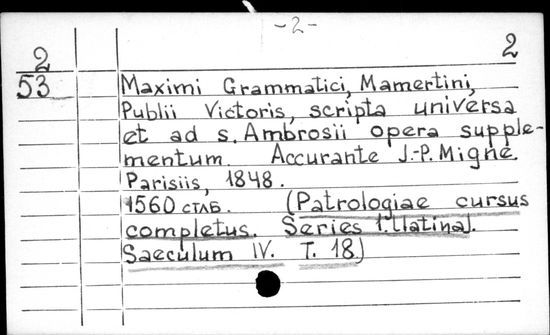 -2-
2
2
53
Maximi Grammatici, Mamertini,
Publii Victoris, scripta universa
et ad s. Ambrosii opera supple-
mentum. Accurante J.-P. Migne.
Parisiis, 1848.
1560 стлб. (Patrologiae cursus
completus. Series 1. llatina).
Saeculum IV. T. 18.)